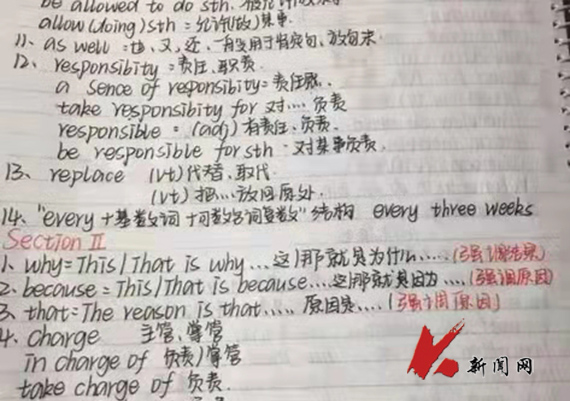 be allowed to do sth.
allow (doing) sth = 允许(做)某事.
11、as well = 也、又、还、一般用于肯定句、放句末
12、responsibity = 责任、职责.
a sence of responsibity = 责任感.
take responsibity for 对…. 负责
responsible = (adj) 有责任、负责.
be responsible for sth : 对某事负责.
13、replace (vt) 代替、取代
(vt) 把…放回原处.
14、"every + 基数词 + 可数名词复数" 结构 every three weeks
Section II
1、why = This / That is why … 这/那就是为什么……(强调结果)
2、because = This / That is because … 这/那是因为….(强调原因)
3、that = The reason is that ….. 原因是….(强调原因)
4、charge 主管、掌管
in charge of 负责/掌管
take charge of 负责.
新闻网